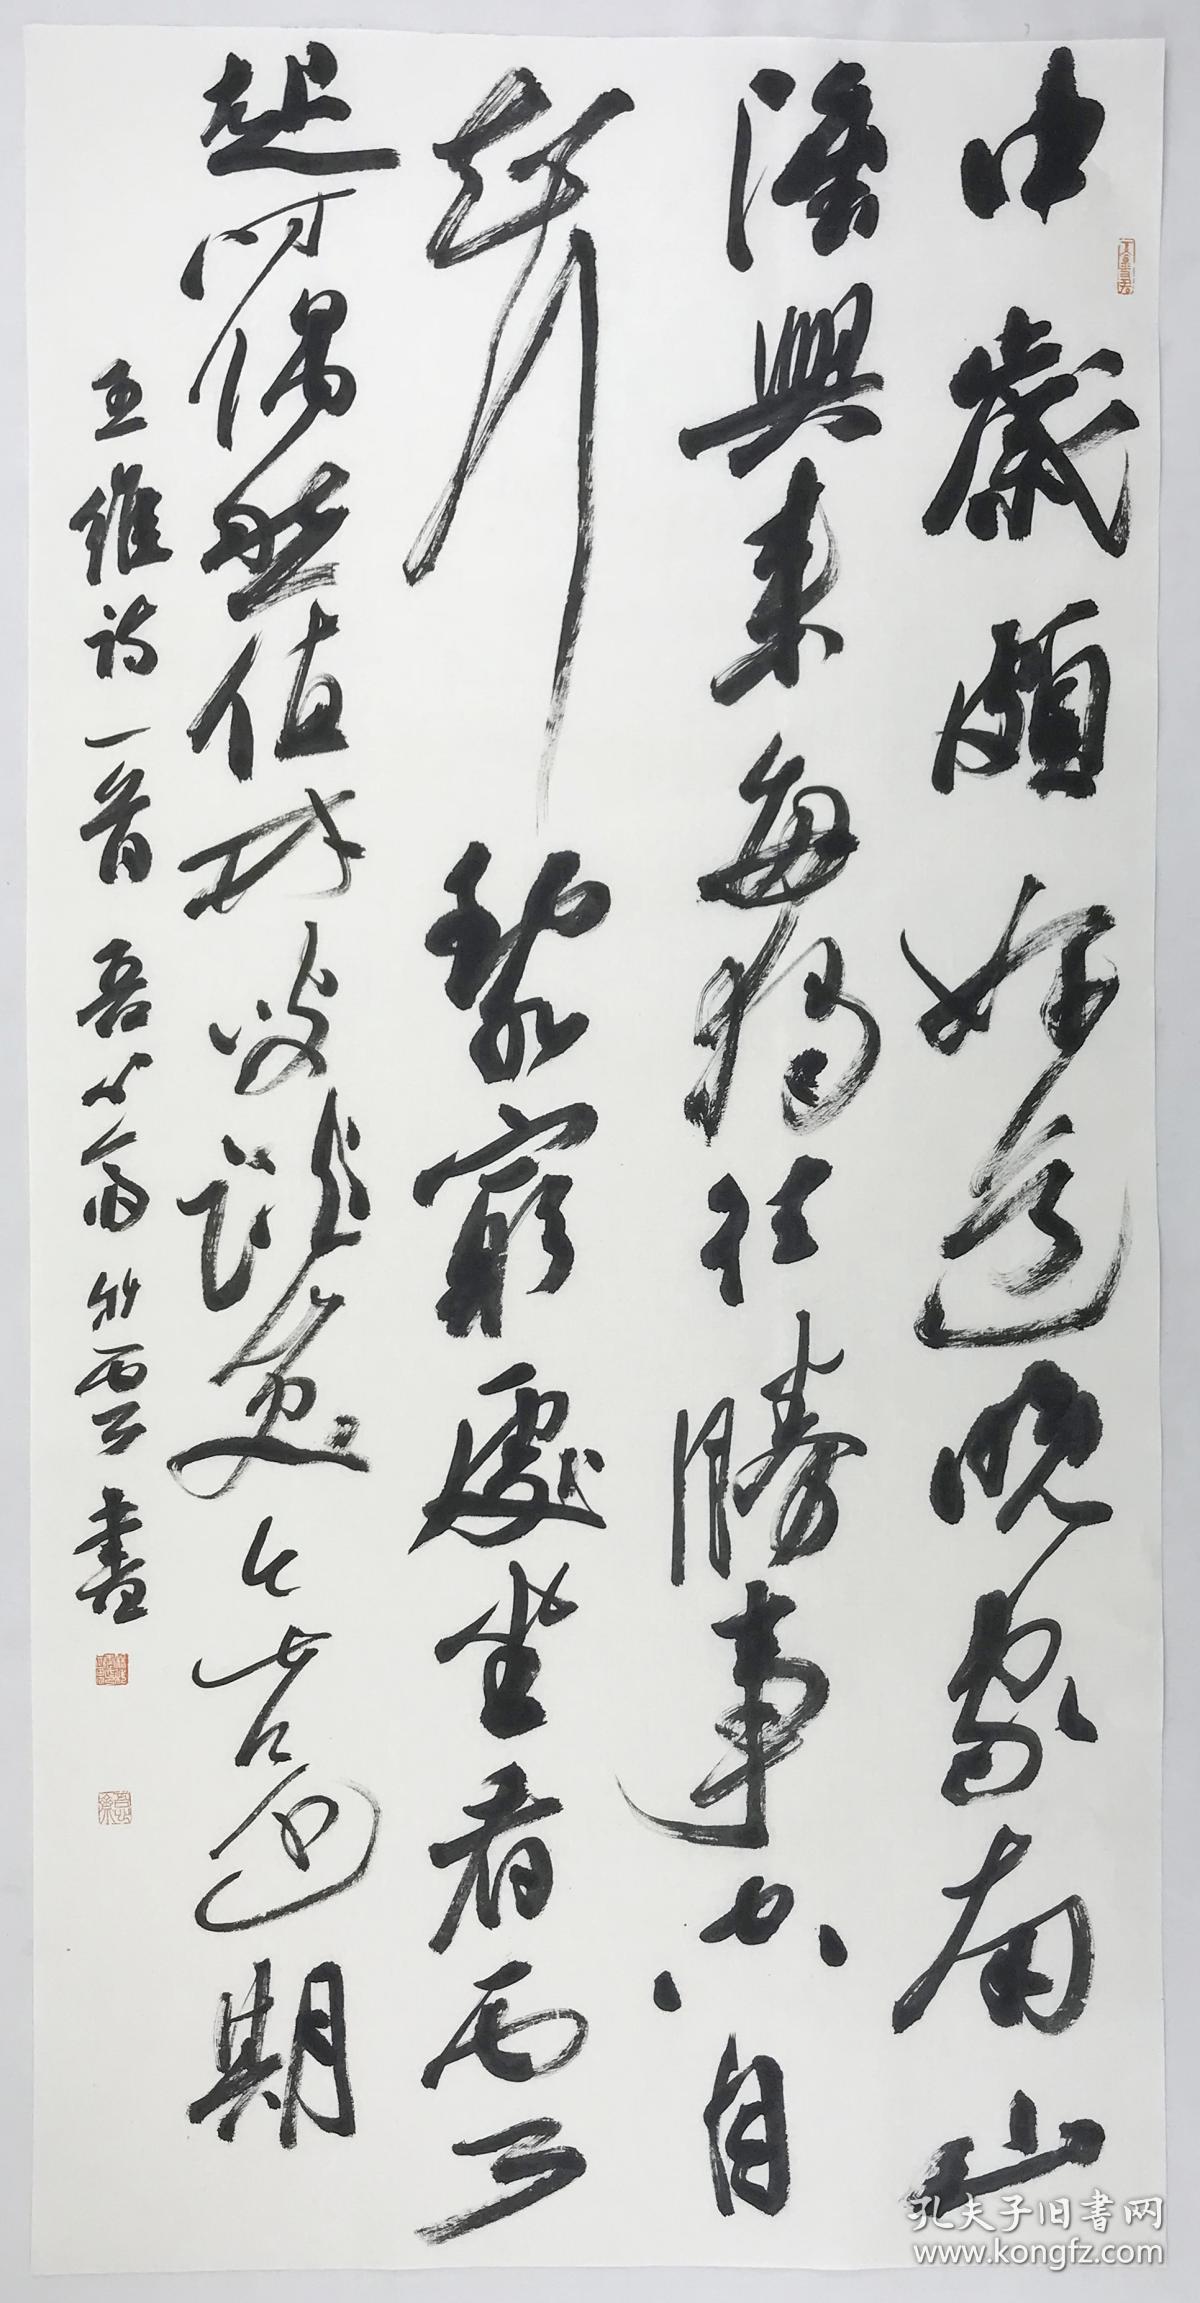 中歲頗好道晚家南山
陲興來每獨往勝事空自
知行到水窮處坐看雲
起時偶然值林叟談笑無還期
王維詩一首 吾心齋 竹雲書
孔夫子旧书网
www.kongfz.com